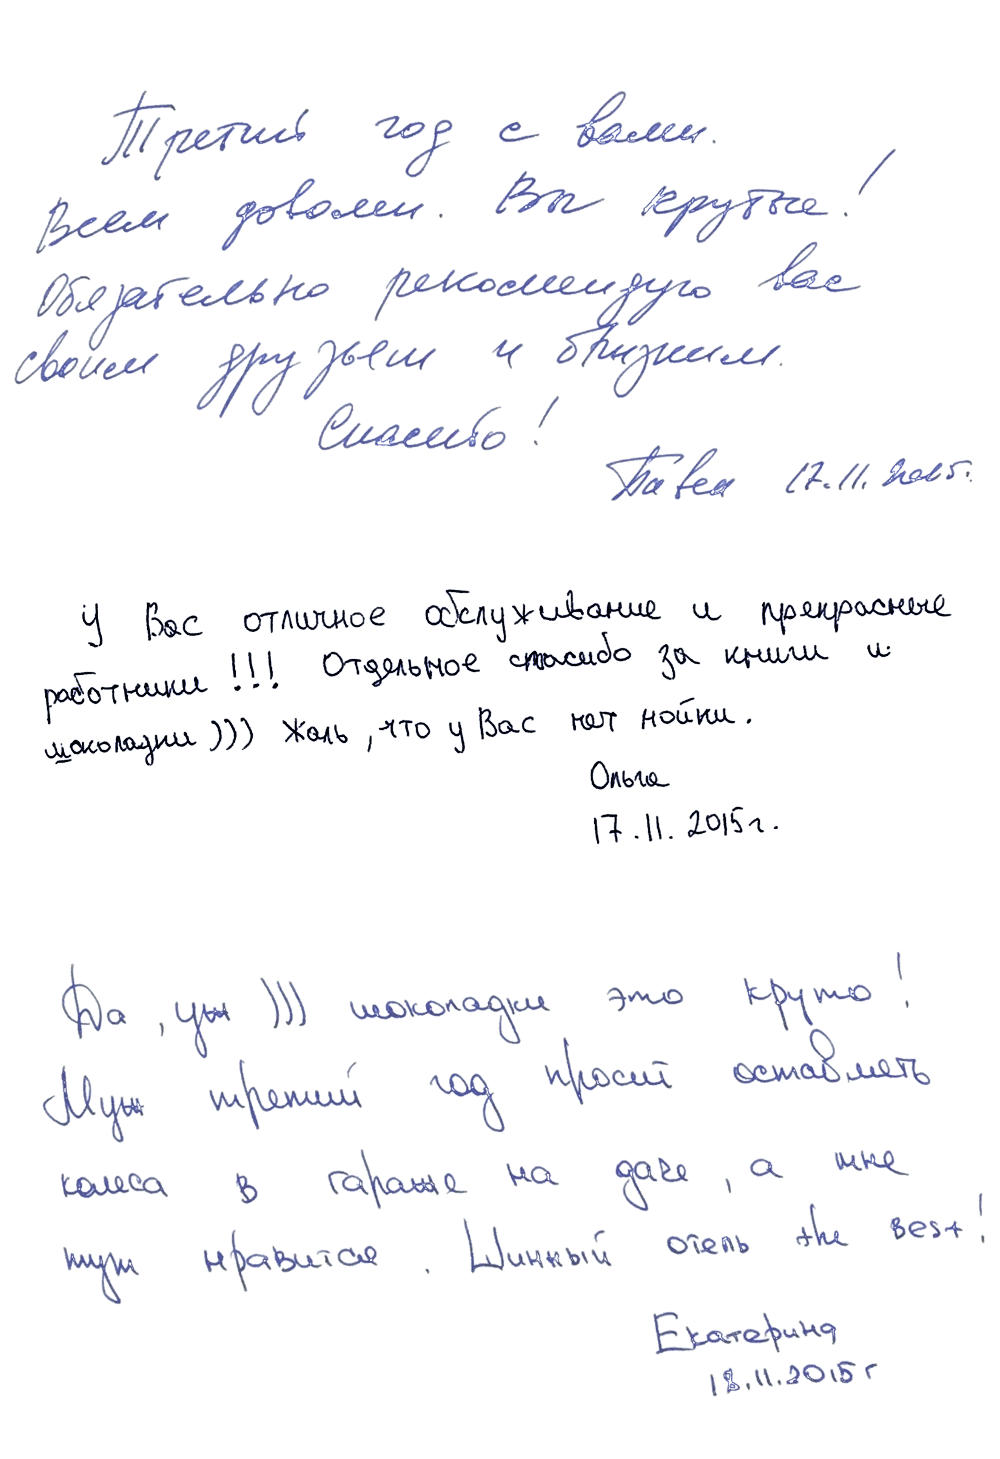 Третий год с вами.
Всем доволен. Вы крутые!
Обязательно рекомендую вас
своим друзьям и близким.
Спасибо!
Павел 17.11.2015.
У Вас отличное обслуживание и прекрасные
работники!!! Отдельное спасибо за книги и
шоколадки))) Жаль, что у Вас нет мойки.
Ольга
17.11.2015г.
Да, уж))) шоколадки это круто!
Муж третий год просит оставлять
колеса в гараже на даче, а мне
тут нравится. Шинный отель the Best!
Екатерина
18.11.2015г